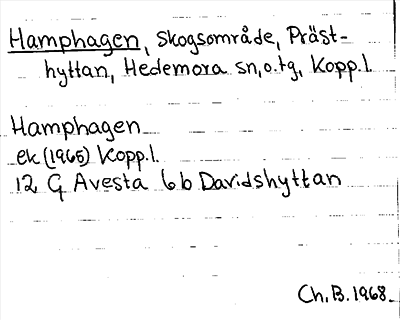 Hamphagen, Skogsområde, Präst-
hyttan, Hedemora sn, o. tg, Kopp. l.
Hamphagen
ek (1965) Kopp. l.
12 G Avesta 6 b Davidshyttan
Ch. B. 1968